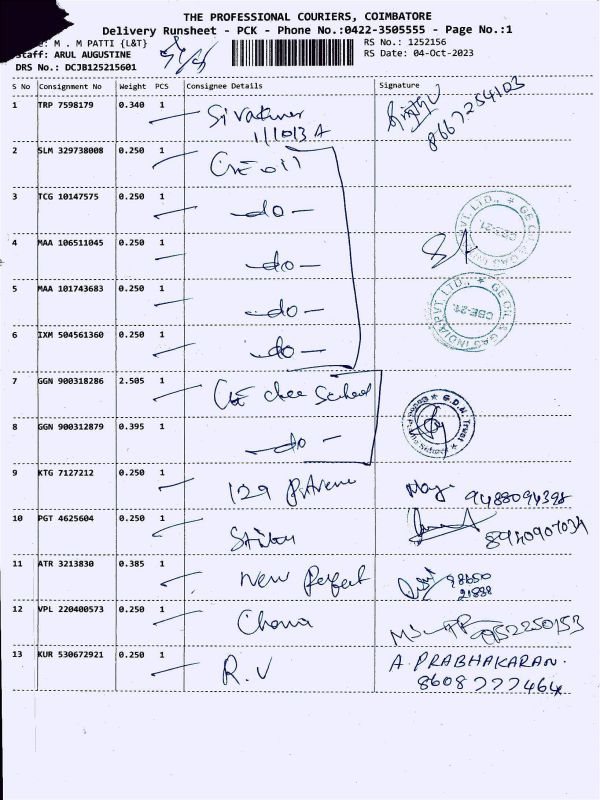 THE PROFESSIONAL COURIERS, COIMBATORE
Delivery Runsheet - PCK - Phone No.:0422-3505555 - Page No.:1
: M . M PATTI {L&T}
RS No.: 1252156
Staff: ARUL AUGUSTINE
RS Date: 04-Oct-2023
DRS No.: DCJB125215601
S No Consignment No Weight PCS Consignee Details Signature
1 TRP 7598179 0.340 1 8667254103
2 SLM 329738008 0.250 1 GE oil
3 TCG 10147575 0.250 1 -do-
4 MAA 106511045 0.250 1 -do-
5 MAA 101743683 0.250 1 -do-
6 IXM 504561360 0.250 1 -do-
7 GGN 900318286 2.505 1 GE
8 GGN 900312879 0.395 1 -do-
G.D.N. Trust
9 KTG 7127212 0.250 1 129 9488094398
10 PGT 4625604 0.250 1
11 ATR 3213830 0.385 1 New Perfect 98650
21888
12 VPL 220400573 0.250 1
13 KUR 530672921 0.250 1 R.V A. PRABHAKARAN.
8608777464